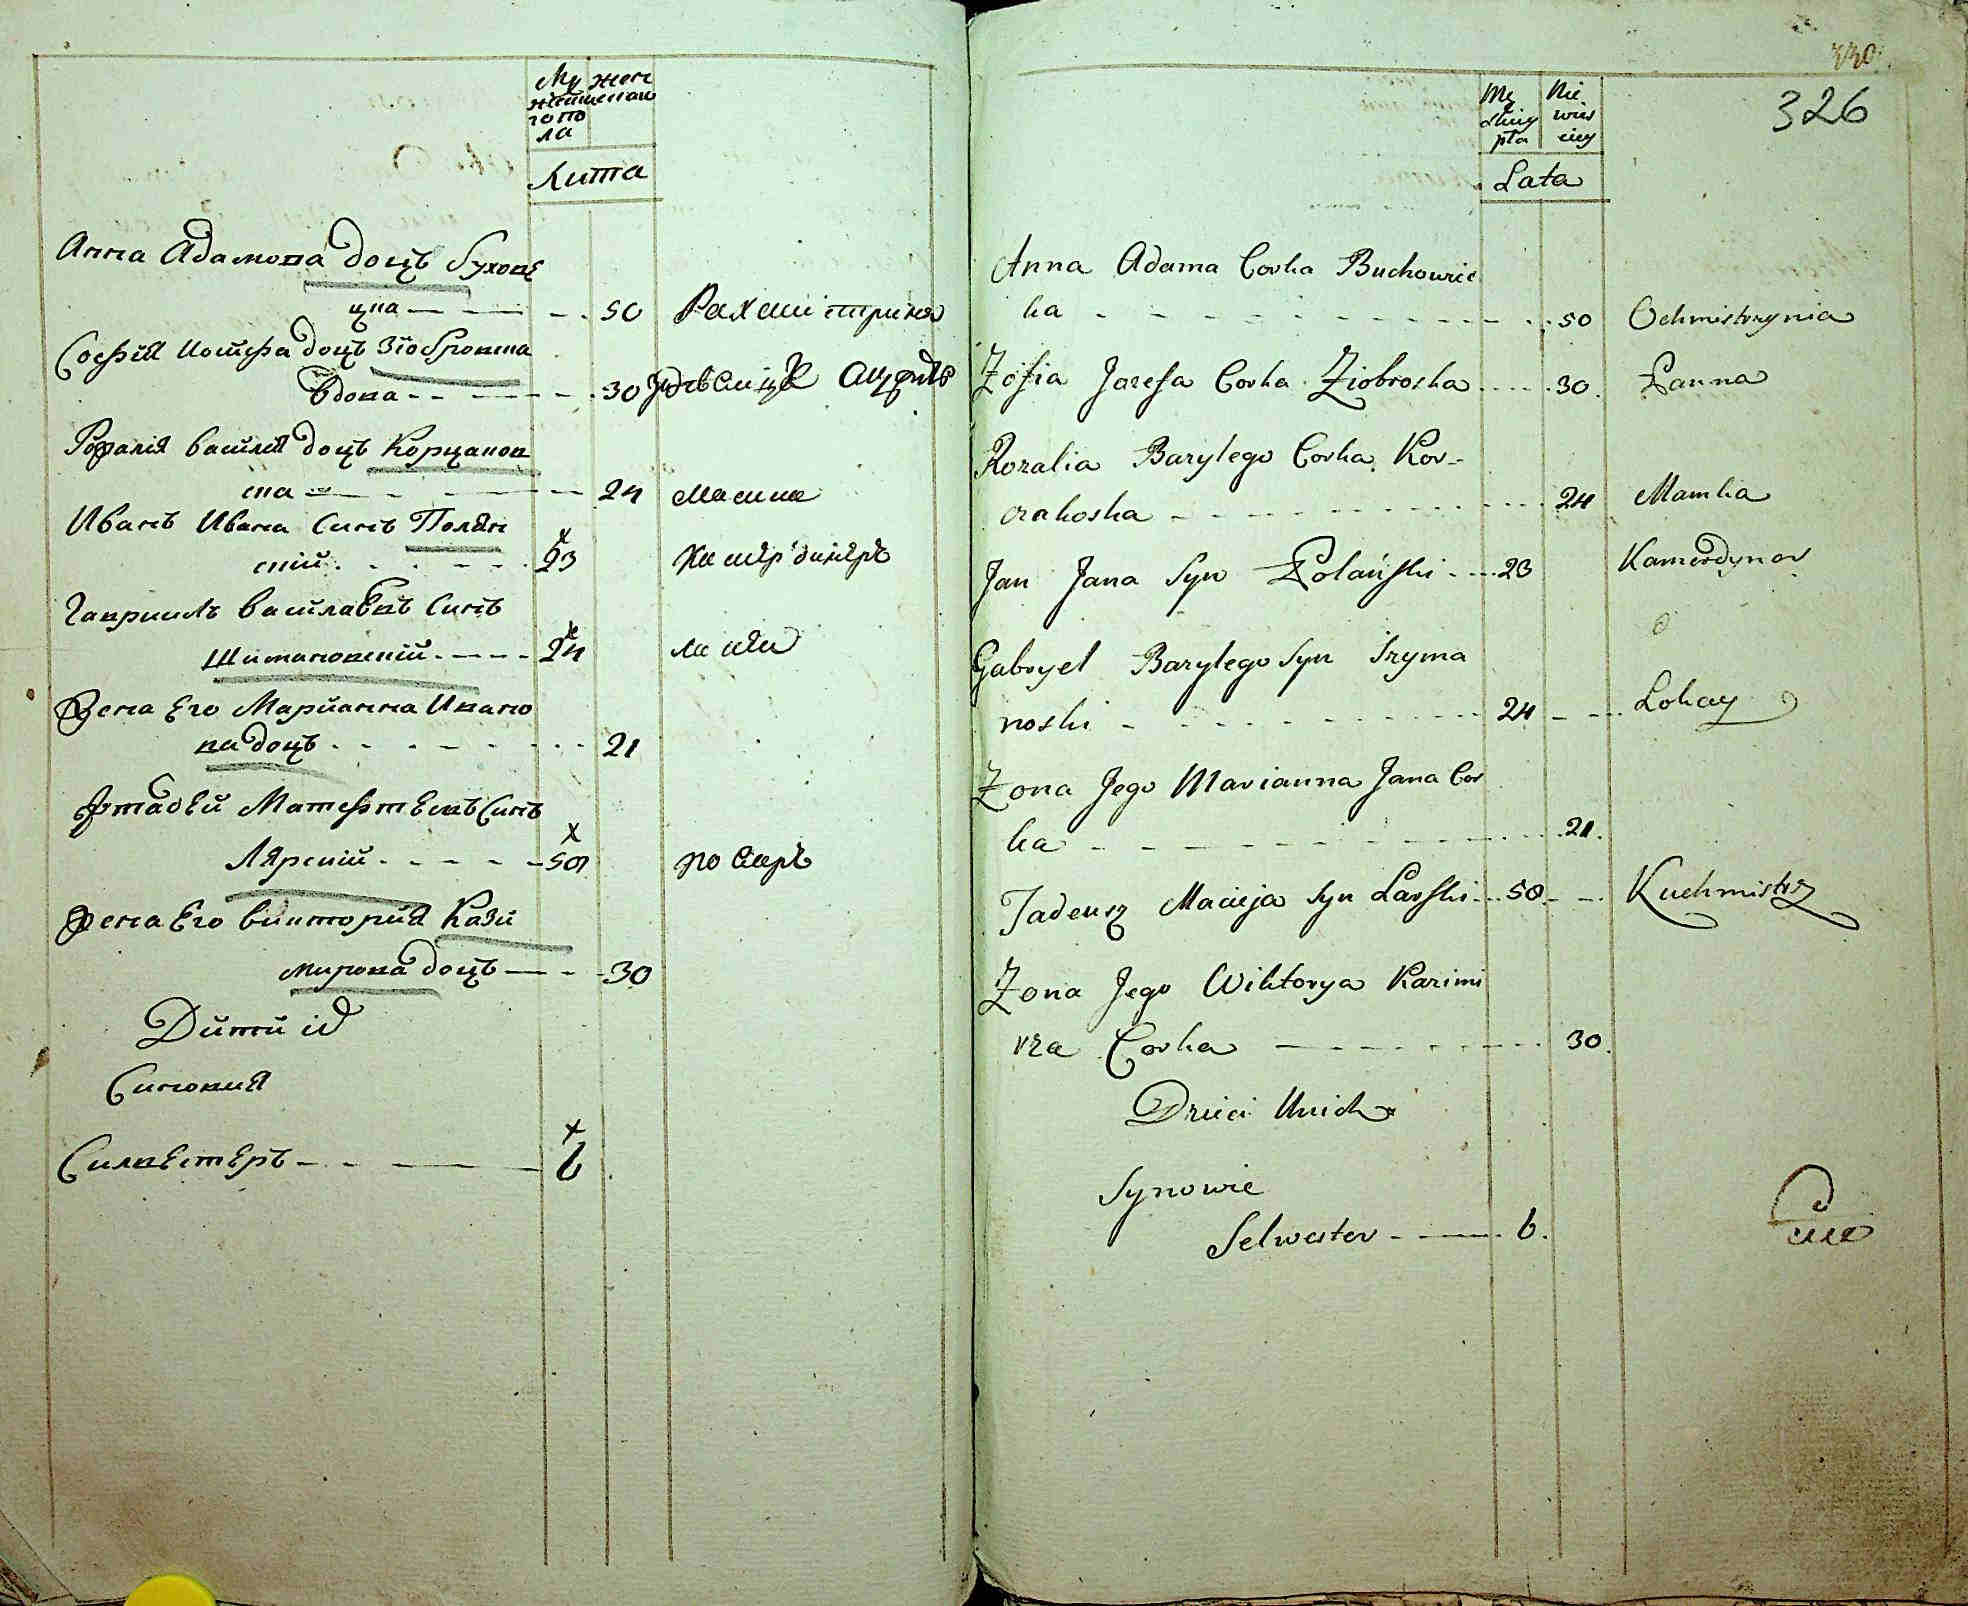 Му жен
жеский скаго
го по
ла
Лита
Анна Адамова доцъ Бухове
цка — — — - . 50
Софія Іосифа доцъ Зіобровска
вдова - - — — - . 30
Розалія Василія доцъ Корчаков
ска — — - — — 24 Мамка
Иванъ Ивана Синъ Полян
скій . - - - - . 23 Камердинеръ
Гавриилъ Василіевъ Синъ
Шимановскій . - - - 24 Лакей
Жена Его Марианна Ивано
ва доцъ . - - - - . 21
Фтадей Матефтеевъ Синъ
Лярскій . - - - - 50 по варъ
Жена Его Виктория Кази
мирова доцъ — - - 30
Дити іх
Синовия
Силвестеръ - - — — 6
330
326
Mę Nie
skiey wies
płci ciey
Lata
Anna Adama Corka Buchowiec
ka - - - - - - - - 50 Ochmistrzynia
Zofia Jozefa Corka Ziobroska . . . . 30. Panna
Rozalia Bazylego Corka Kor-
czakoska - - - - - - - 24 Mamka
Jan Jana Syn Polański - . . . 23 Kamerdyner
Gabryel Bazylego Syn Szyma
noski - - - - - - - 24 - - . . Lokay
Zona Jego Marianna Jana Cor
ka - - - - - - - - . . . 21.
Tadeusz Macieja Syn Larski . . . 50 . - - . Kuchmistrz
Zona Jego Wiktorya Kazimi
rza Corka — - - - - - . . 30.
Dzieci Unich
Synowie
Selwester - — — . 6.